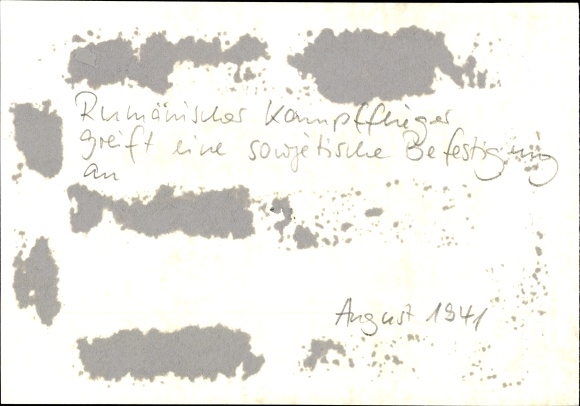 Rumänischer Kampfflieger
greift eine sowjetische Befestigung
an
August 1941